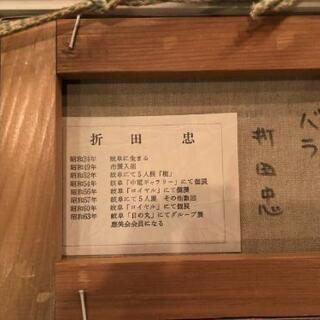 折田 忠
昭和24年 岐阜に生まる
昭和49年 市展入選
昭和52年 岐阜にて5人展「樹」
昭和54年 岐阜「中電ギャラリー」にて個展
昭和56年 岐阜「ロイヤル」にて個展
昭和57年 岐阜にて5人展 その他数回
昭和60年 岐阜「ロイヤル」にて個展
昭和63年 岐阜「日の丸」にてグループ展
会会員になる
バラ
折田忠